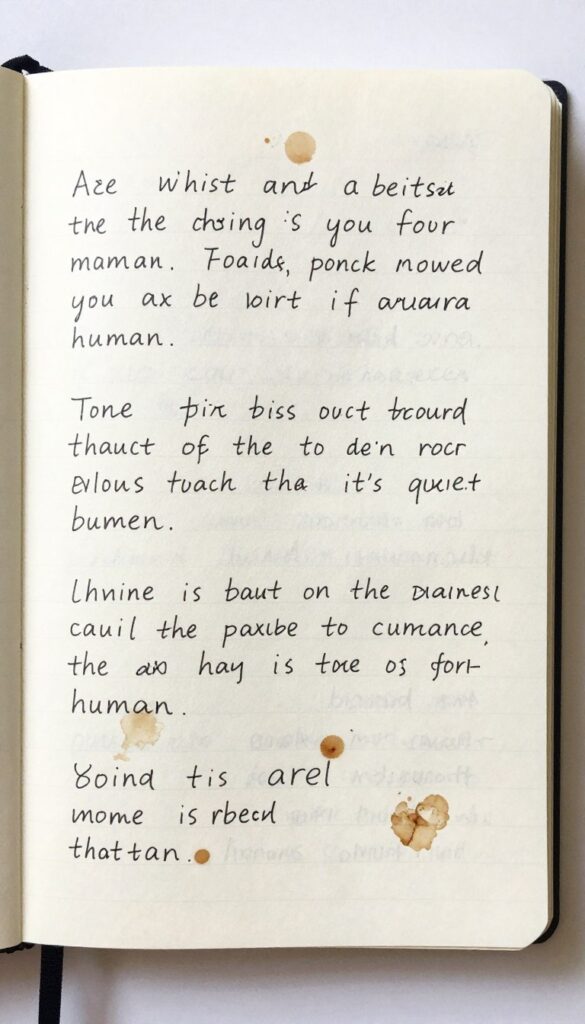 Aze whist and a beitsut
tne the chsing is you four
maman. Foaids, ponck nowed
you ax be voirt if auuara
human.
Tone pix biss ouct bcourd
thauct of the to de'n rocr
Evlous tuach tha it's quiet
bumen.
Lhnine is baut on the
cauil the paxibe to cumance,
the hay is toe os fort
human.
tis arel
mome is rbecd
thattan.